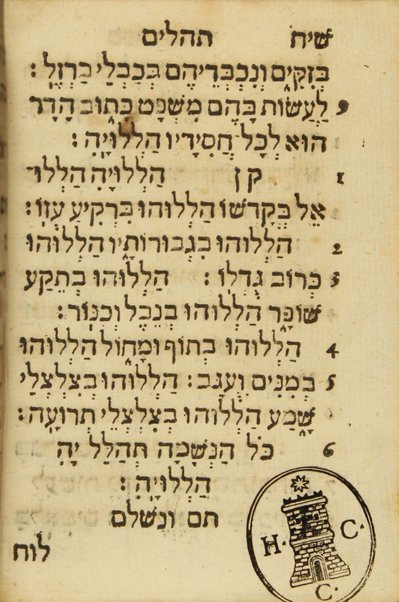 שיח תהלים
בְּזִקִּים וְנִכְבְּדֵיהֶם בְּכַבְלֵי בַרְזֶל׃
9 לַעֲשׂוֹת בָּהֶם מִשְׁפָּט כָּתוּב הָדָר
הוּא לְכָל חֲסִידָיו הַלְלוּיָהּ׃
1 קנ הַלְלוּיָהּ הַלְלוּ
אֵל בְּקָדְשׁוֹ הַלְלוּהוּ בִּרְקִיעַ עֻזּוֹ׃
2 הַלְלוּהוּ בִגְבוּרוֹתָיו הַלְלוּהוּ
3 כְּרוֹב גֻּדְלוֹ׃ הַלְלוּהוּ בְתֵקַע
שׁוֹפָר הַלְלוּהוּ בְנֵבֶל וְכִנּוֹר׃
4 הַלְלוּהוּ בְתוֹף וּמָחוֹל הַלְלוּהוּ
5 בְמִנִּים וְעֻגָב׃ הַלְלוּהוּ בְצִלְצְלֵי
שָׁמַע הַלְלוּהוּ בְצִלְצְלֵי תְרוּעָה׃
6 כֹּל הַנְּשָׁמָה תְּהַלֵּל יָהּ
הַלְלוּיָהּ׃
תם ונשלם
לוח
H. C. C.